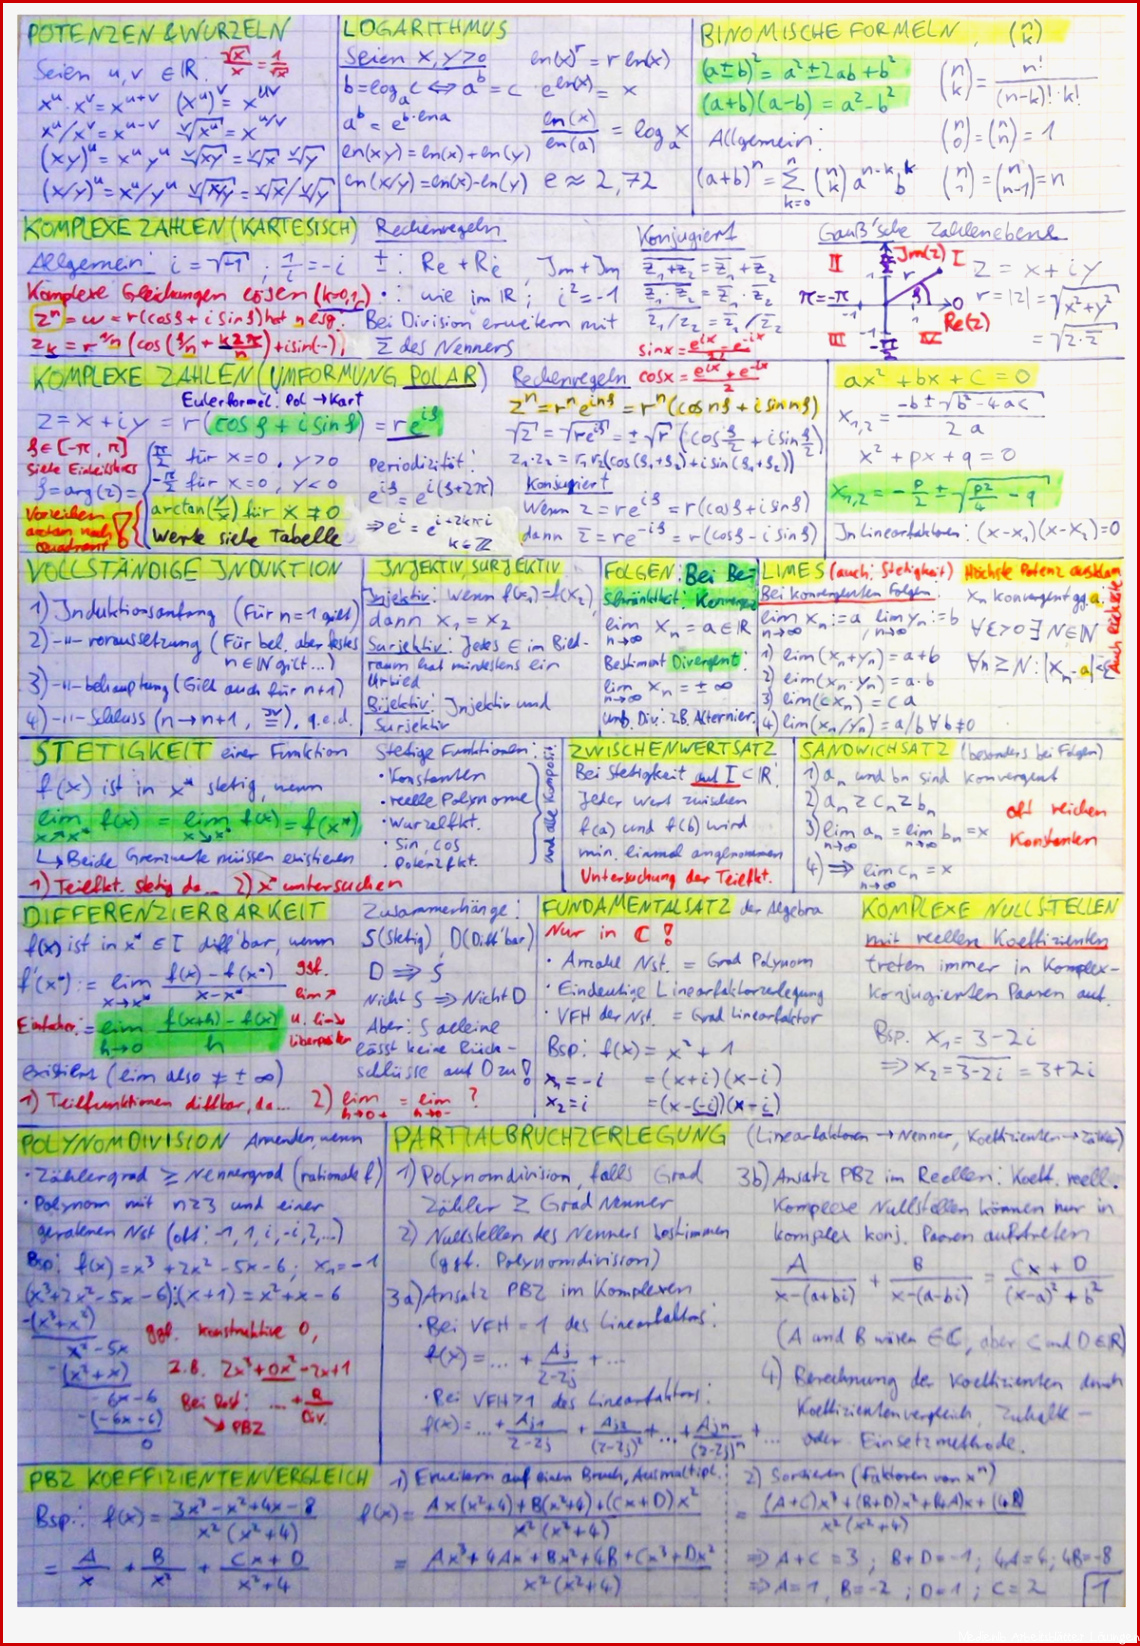 POTENZEN & WURZELN
Seien u, v ∈ ℝ: √x/x = 1/√x
x^u · x^v = x^(u+v) (x^u)^v = x^(uv)
x^u/x^v = x^(u-v) ᵛ√(x^u) = x^(u/v)
(xy)^u = x^u y^u ᵛ√(xy) = ᵛ√x ᵛ√y
(x/y)^u = x^u/y^u ᵛ√(x/y) = ᵛ√x / ᵛ√y
LOGARITHMUS
Seien x, y > 0 ln(x)^r = r ln(x)
b = log_a c ⟺ a^b = c · e^(ln(x)) = x
a^b = e^(b·ln a) ln(x)/ln(a) = log_a x
ln(xy) = ln(x) + ln(y)
ln(x/y) = ln(x) - ln(y) e ≈ 2,72
BINOMISCHE FORMELN, (n k)
(a±b)² = a² ± 2ab + b² (n k) = n!/((n-k)!·k!)
(a+b)(a-b) = a² - b²
Allgemein: (n 0) = (n n) = 1
(a+b)^n = Σ_(k=0)^n (n k) a^(n-k) b^k (n 1) = (n n-1) = n
KOMPLEXE ZAHLEN (KARTESISCH)
Allgemein: i = √-1 ; 1/i = -i
Komplexe Gleichungen lösen (k=0,1..)
z^n = w = r(cos φ + i sin φ) hat n lsg.
z_k = r^(1/n) (cos(φ/n + k2π/n) + i sin(~))
Rechenregeln
± : Re + Re Im + Im
· : wie im ℝ ; i² = -1
Bei Division erweitern mit
z̅ des Nenners
Konjugiert
z1 + z2 = z̅1 + z̅2
z1 · z2 = z̅1 · z̅2
z1/z2 = z̅1/z̅2
sin x = (e^(ix) - e^(-ix))/2i
cos x = (e^(ix) + e^(-ix))/2
Gauß'sche Zahlenebene
II Im(z) I z = x + iy
π = -π 0 r = |z| = √(x²+y²)
Re(z)
III IV = √(z·z̅)
KOMPLEXE ZAHLEN (UMFORMUNG POLAR)
Eulerformel: Pol → Kart
z = x + iy = r(cos φ + i sin φ) = re^(iφ)
φ ∈ [-π, π]
siehe Einheitskreis
φ = arg(z) =
π/2 für x=0, y>0
-π/2 für x=0, y<0
arctan(y/x) für x ≠ 0
Werte siehe Tabelle
Vorzeichen
arctan nach
Quadrant!
Periodizität:
e^(iφ) = e^(i(φ+2π))
⇒ e^i = e^(i+2kπi)
k ∈ ℤ
Rechenregeln
z^n = r^n e^(inφ) = r^n (cos nφ + i sin nφ)
√z = √(re^(iφ)) = ±√r (cos φ/2 + i sin φ/2)
z1·z2 = r1 r2 (cos(φ1+φ2) + i sin(φ1+φ2))
Konjugiert
Wenn z = re^(iφ) = r(cos φ + i sin φ)
dann z̅ = re^(-iφ) = r(cos φ - i sin φ)
ax² + bx + c = 0
x1,2 = (-b ± √(b²-4ac))/2a
x² + px + q = 0
x1,2 = -p/2 ± √(p²/4 - q)
In Linearfaktoren: (x-x1)(x-x2) = 0
VOLLSTÄNDIGE INDUKTION
1) Induktionsanfang (Für n=1 gilt)
2) -"- voraussetzung (Für bel. aber festes
n ∈ ℕ gilt...)
3) -"- behauptung (Gilt auch für n+1)
4) -"- Schluss (n → n+1, IV), q.e.d.
INJEKTIV, SURJEKTIV
Injektiv: wenn f(x1) = f(x2),
dann x1 = x2
Surjektiv: Jedes ∈ im Bild-
raum hat mindestens ein
Urbild
Bijektiv: Injektiv und
Surjektiv
FOLGEN: Bei Be-
schränktheit: Konvergenz
lim n→∞ xn = a ∈ ℝ
Bestimmt Divergent:
lim n→∞ xn = ±∞
Unb. Div: zB. Alternier.
LIMES (auch: Stetigkeit) Höchste Potenz ausklam
Bei konvergenten Folgen:
lim n→∞ xn := a, lim n→∞ yn := b
1) lim(xn + yn) = a + b
2) lim(xn · yn) = a · b
3) lim(c xn) = c a
4) lim(xn/yn) = a/b ∀ b≠0
xn konvergent gg. a:
∀ε>0 ∃ N ∈ ℕ
∀n ≥ N: |xn - a| < ε
STETIGKEIT einer Funktion
f(x) ist in x* stetig, wenn
lim x↗x* f(x) = lim x↘x* f(x) = f(x*)
↳ Beide Grenzwerte müssen existieren
1) Teilfkt. stetig da... 2) x* untersuchen
Stetige Funktionen:
· Konstanten
· reelle Polynome
· Wurzelfkt.
· Sin, cos
· Potenzfkt.
und alle Komposit.
ZWISCHENWERTSATZ
Bei Stetigkeit auf I ⊂ ℝ:
Jeder Wert zwischen
f(a) und f(b) wird
min. einmal angenommen
Untersuchung der Teilfkt.
SANDWICHSATZ (besonders bei Folgen)
1) an und bn sind konvergent
2) an ≥ cn ≥ bn
3) lim n→∞ an = lim n→∞ bn = x
4) ⇒ lim n→∞ cn = x
oft reichen
Konstanten
DIFFERENZIERBARKEIT
f(x) ist in x* ∈ I diff'bar, wenn
f'(x*) := lim x→x* (f(x) - f(x*))/(x - x*) ggf.
lim↗
Einfacher: = lim h→0 (f(x+h) - f(x))/h u. lim↘
überprüfen
existiert (lim also ≠ ±∞)
1) Teilfunktionen diffbar, da... 2) lim h→0+ = lim h→0- ?
Zusammenhänge:
S(Stetig), D(Diff'bar)
D ⇒ S
Nicht S ⇒ Nicht D
Aber: S alleine
lässt keine Rück-
schlüsse auf D zu!
FUNDAMENTALSATZ der Algebra
Nur in ℂ !
· Anzahl Nst. = Grad Polynom
· Eindeutige Linearfaktorzerlegung
· VFH der Nst. = Grad Linearfaktor
Bsp: f(x) = x² + 1
x1 = -i = (x+i)(x-i)
x2 = i = (x-(-i))(x-i)
KOMPLEXE NULLSTELLEN
mit reellen Koeffizienten
treten immer in Komplex-
konjugierten Paaren auf.
Bsp. x1 = 3-2i
⇒ x2 = 3-2i = 3+2i
POLYNOMDIVISION Anwenden, wenn
· Zählergrad ≥ Nennergrad (rationale f)
· Polynom mit n≥3 und einer
geratenen Nst (oft: -1, 1, i, -i, 2, ...)
Bsp: f(x) = x³ + 2x² - 5x - 6 ; x1 = -1
(x³+2x²-5x-6):(x+1) = x² + x - 6
-(x³+x²)
x² - 5x
-(x²+x)
-6x-6
-(-6x-6)
0
ggf. konstruktive 0,
z.B. 2x³+0x²-2x+1
Bei Rest: ... + R/Div.
↘ PBZ
PARTIALBRUCHZERLEGUNG (Linearfaktoren → Nenner, Koeffizienten → Zähler)
1) Polynomdivision, falls Grad
Zähler ≥ Grad Nenner
2) Nullstellen des Nenners bestimmen
(ggf. Polynomdivision)
3a) Ansatz PBZ im Komplexen
· Bei VFH = 1 des Linearfaktors:
f(x) = ... + Aj/(z-zj) + ...
· Bei VFH > 1 des Linearfaktors:
f(x) = ... + Aj1/(z-zj) + Aj2/(z-zj)² + ... + Ajn/(z-zj)^n + ...
3b) Ansatz PBZ im Reellen: Koeff. reell.
Komplexe Nullstellen können nur in
komplex konj. Paaren auftreten
A/(x-(a+bi)) + B/(x-(a-bi)) = (Cx + D)/((x-a)² + b²)
(A und B wären ∈ ℂ, aber C und D ∈ ℝ)
4) Berechnung der Koeffizienten durch
Koeffizientenvergleich, Zuhalte-
oder Einsetzmethode.
PBZ KOEFFIZIENTENVERGLEICH
Bsp.: f(x) = (3x³ - x² + 4x - 8)/(x²(x²+4))
= A/x + B/x² + (Cx + D)/(x²+4)
1) Erweitern auf einen Bruch, Ausmultipl.
f(x) = (Ax(x²+4) + B(x²+4) + (Cx+D)x²)/(x²(x²+4))
= (Ax³ + 4Ax + Bx² + 4B + Cx³ + Dx²)/(x²(x²+4))
2) Sortieren (Faktoren von x^n)
= ((A+C)x³ + (B+D)x² + (4A)x + (4B))/(x²(x²+4))
⇒ A+C = 3 ; B+D = -1 ; 4A = 4 ; 4B = -8
⇒ A = 1, B = -2 ; D = 1 ; C = 2 1